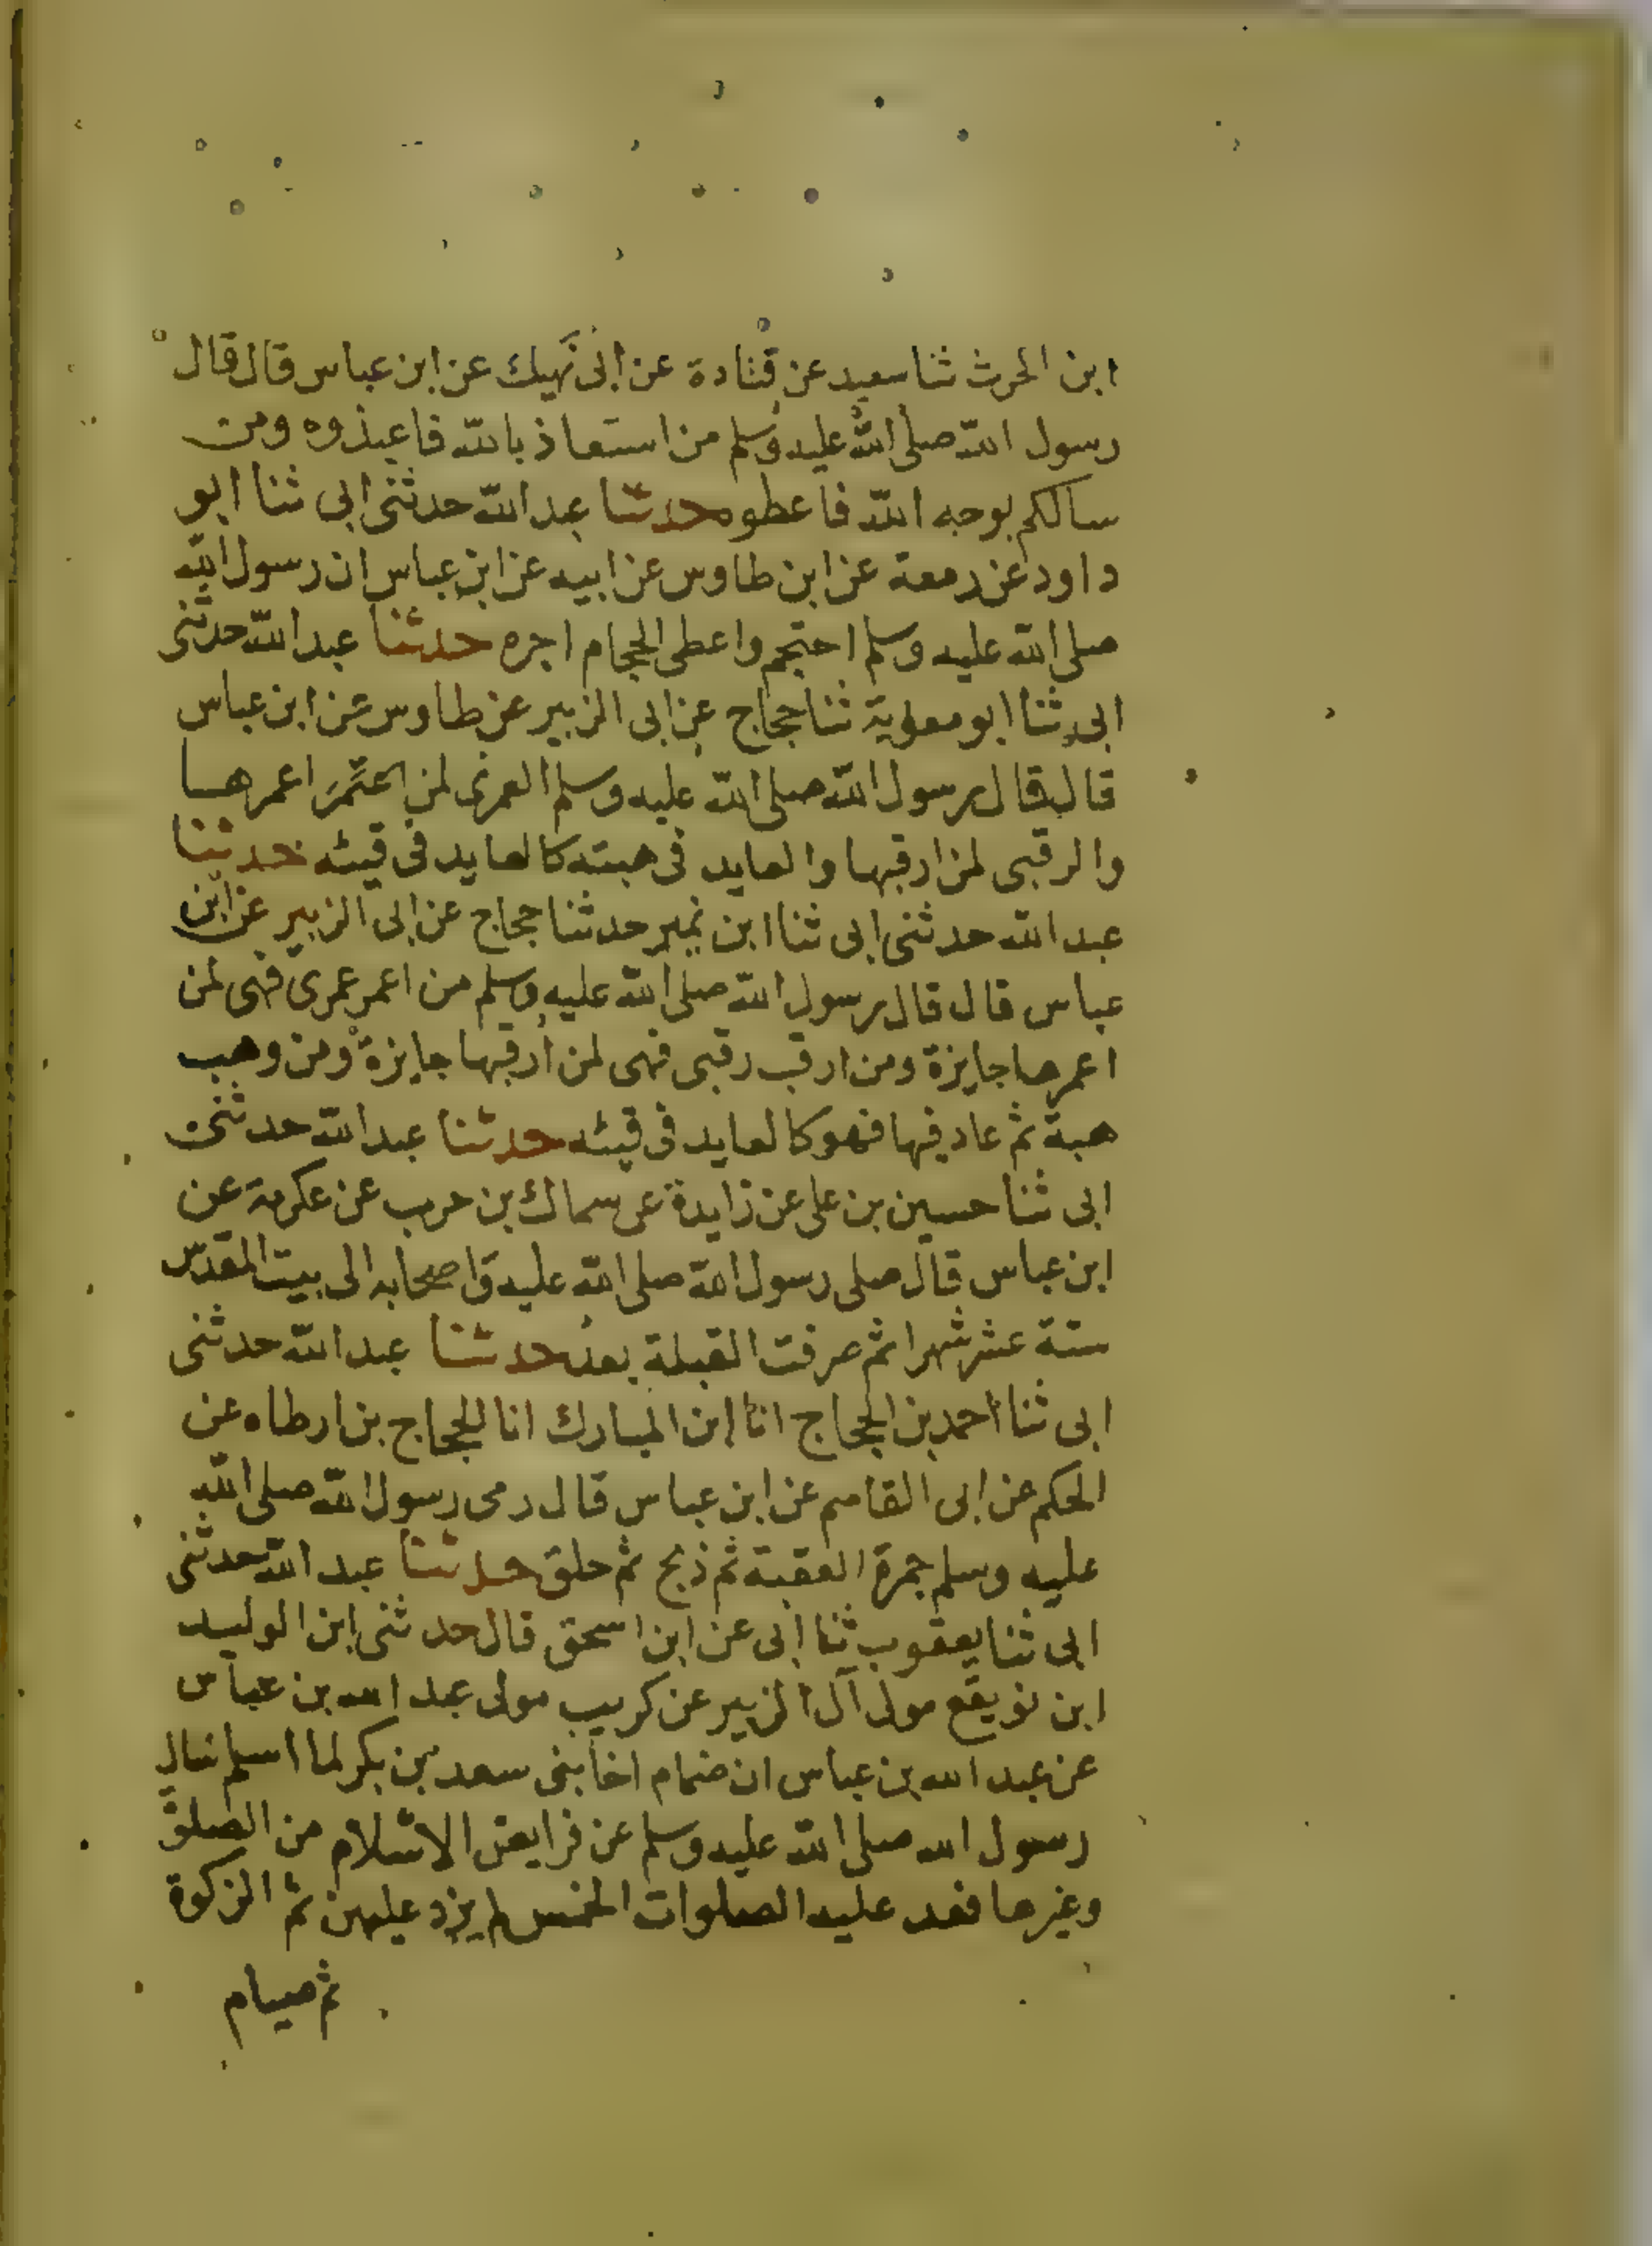 ابن الحرث ثنا سعيد عن قتادة عن ابى نَهيك عن ابن عباس قال قال
رسول الله صلى الله عليه وسلم من استعاذ بالله فاعيذوه ومن
سالكم بوجه الله فاعطوه حدثنا عبد الله حدثنى ابى ثنا ابو
داود عن زمعة عن ابن طاوس عن ابيه عن ابن عباس ان رسول الله
صلى الله عليه وسلم احتجم واعطى الحجام اجره حدثنا عبد الله حدثنى
ابى ثنا ابو معوية ثنا حجاج عن ابى الزبير عن طاوس عن ابن عباس
قال قال رسول الله صلى الله عليه وسلم العمرى لمن اعمرها
والرقبى لمن ارقبها والعايد فى هبته كالعايد فى قيئه حدثنا
عبد الله حدثنى ابى ثنا ابن نمير حدثنا حجاج عن ابى الزبير عن ابن
عباس قال قال رسول الله صلى الله عليه وسلم من اعمر عمرى فهى لمن
اعمرها جايزة ومن ارقب رقبى فهى لمن ارقبها جايزة ومن وهب
هبة ثم عاد فيها فهو كالعايد فى قيئه حدثنا عبد الله حدثنى
ابى ثنا حسين بن على عن زايدة عن سماك بن حرب عن عكرمة عن
ابن عباس قال صلى رسول الله صلى الله عليه واصحابه الى بيت المقدس
ستة عشر شهرا ثم صرفت القبلة بعد حدثنا عبد الله حدثنى
ابى ثنا احمد بن الحجاج انا ابن المبارك انا الحجاج بن ارطاه عن
الحكم عن ابى القاسم عن ابن عباس قال رمى رسول الله صلى الله
عليه وسلم جمرة العقبة ثم ذبح ثم حلق حدثنا عبد الله حدثنى
ابى ثنا يعقوب ثنا ابى عن ابن اسحق قال حدثنى ابن الوليد
ابن نويفع مولى آل الزبير عن كريب مولى عبد الله بن عباس
عن عبد الله بن عباس ان ضمام اخا بنى سعد بن بكر لما اسلم سال
رسول الله صلى الله عليه وسلم عن فرايض الاسلام من الصلوة
وغيرها فعد عليه الصلوات الخمس لم يزد عليهن ثم الزكوة
ثم صيام